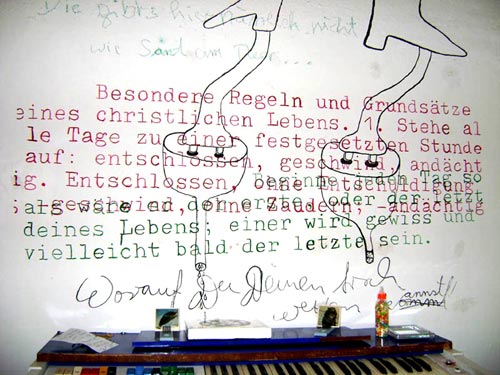 Die gibts hier nicht
wie Sand am
Besondere Regeln und Grundsätze
eines christlichen Lebens. 1. Stehe al
le Tage zu einer festgesetzten Stunde
auf: entschlossen, geschwind, andächt
ig. Entschlossen, ohne Entschuldigung
Beginne jeden Tag so
; geschwind, ohne Zaudern, -andächtig
als wäre er der erste oder der letzt
deines Lebens; einer wird gewiss und
vielleicht bald der letzte sein.
Worauf Du Deinen